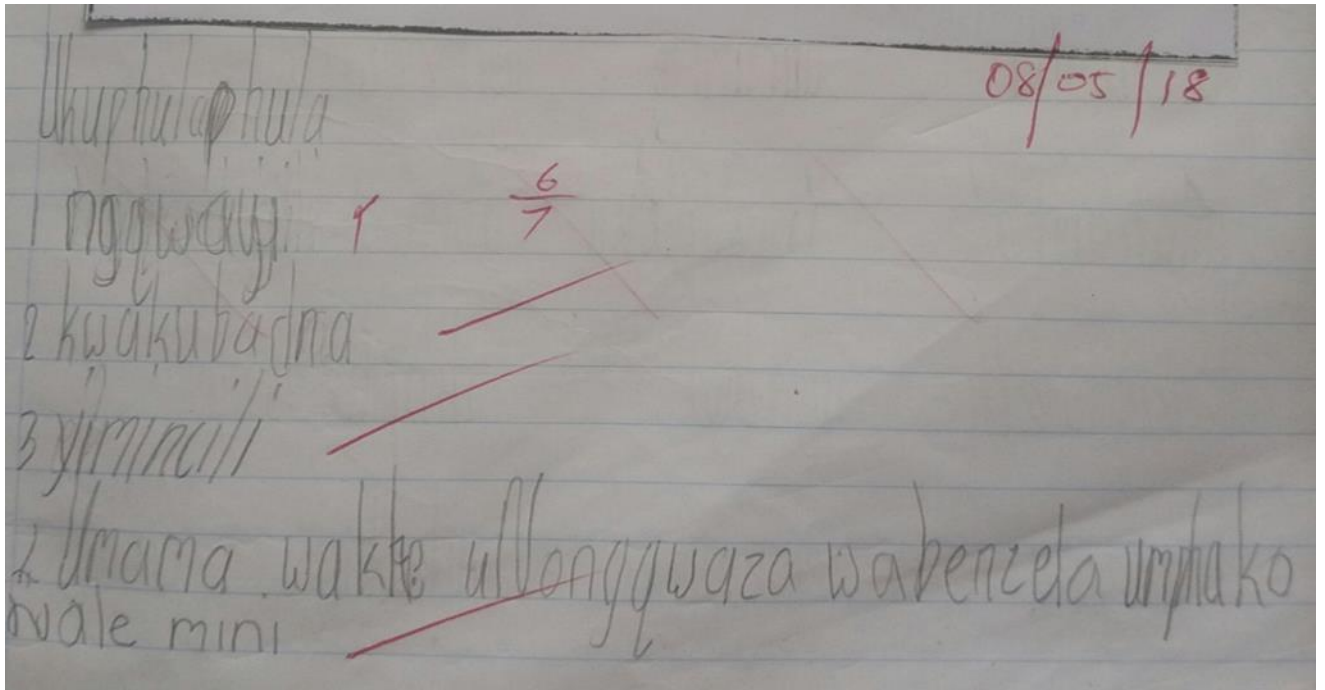 Ukuphulaphula
08/05/18
1 ngqwayi.
6/7
2 kwakubanda
3 yimincili
2 Umama wakhe uNongqwaza wabenzela umphako
wale mini